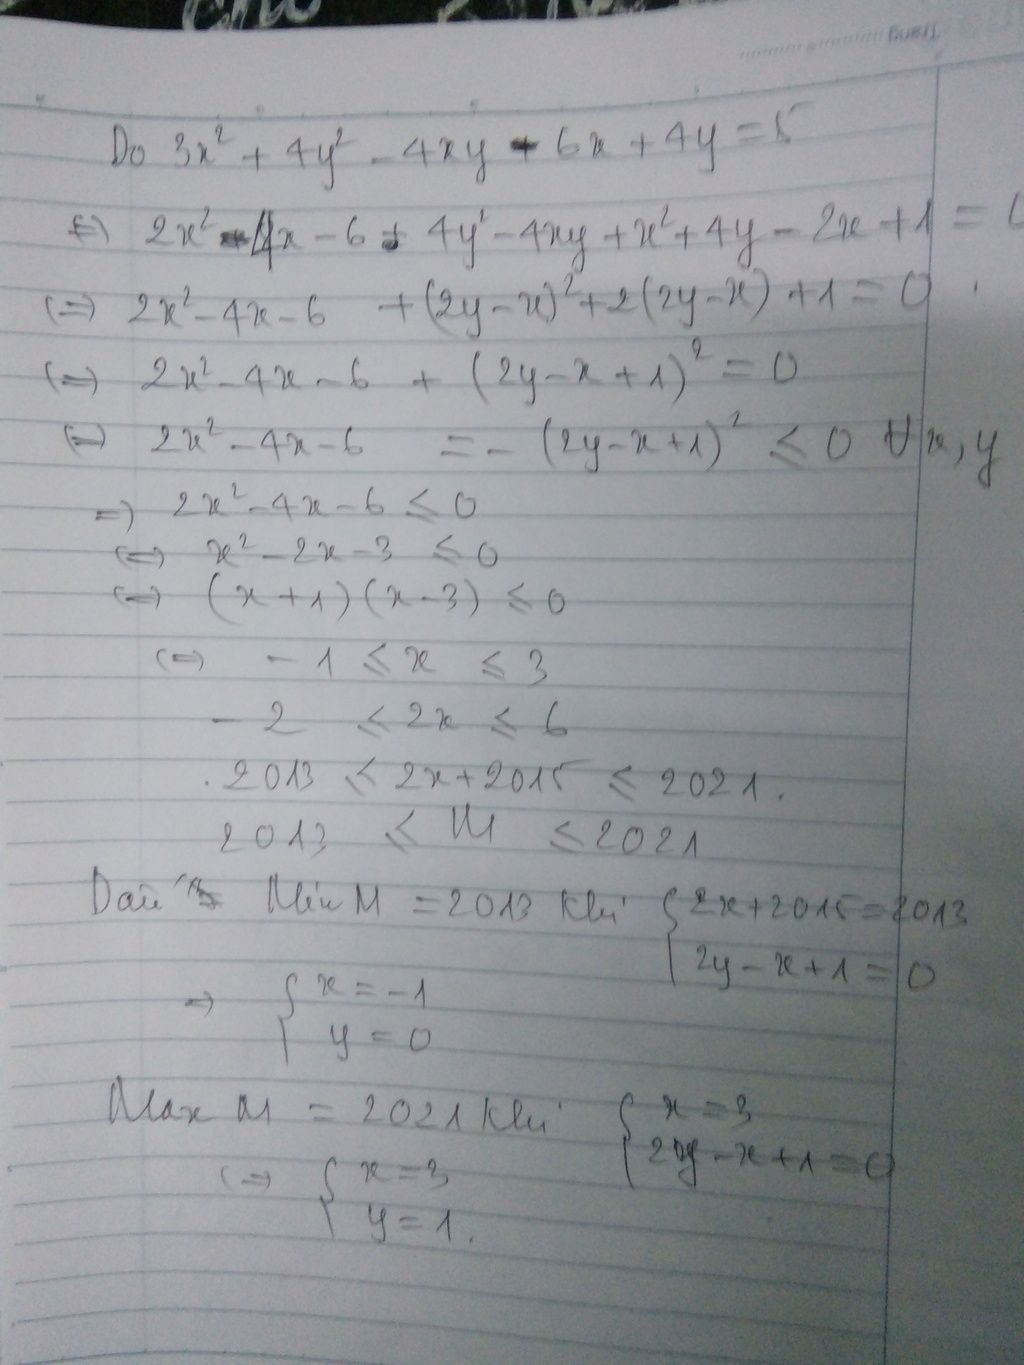 Do 3x² + 4y² - 4xy - 6x + 4y = 5
⇔ 2x² - 4x - 6 + 4y² - 4xy + x² + 4y - 2x + 1 = 0
⇔ 2x² - 4x - 6 + (2y - x)² + 2(2y - x) + 1 = 0
⇔ 2x² - 4x - 6 + (2y - x + 1)² = 0
⇔ 2x² - 4x - 6 = - (2y - x + 1)² ≤ 0 ∀ x, y
⇒ 2x² - 4x - 6 ≤ 0
⇔ x² - 2x - 3 ≤ 0
⇔ (x + 1)(x - 3) ≤ 0
⇔ - 1 ≤ x ≤ 3
- 2 ≤ 2x ≤ 6
2013 ≤ 2x + 2015 ≤ 2021.
2013 ≤ M ≤ 2021
Min M = 2013 khi { 2x + 2015 = 2013
2y - x + 1 = 0
⇒ { x = -1
y = 0
Max M = 2021 khi { x = 3
2y - x + 1 = 0
⇔ { x = 3
y = 1.